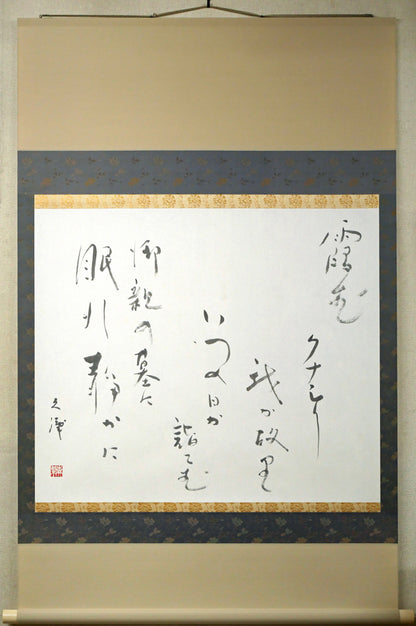 霞む
クナシリ
我が故里
いつの日か
詣てむ
御親の墓に
眠れ静かに